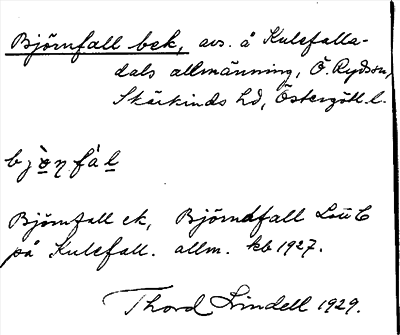 Björnfall bek, avs. å Kulefalla-
dals allmänning, Ö. Ryds sn,
Skärkinds hd, Östergötl. l.
bjò̱ŋfàḻ
Björnfall ek, Björndfall Löu C
på Kulefall. allm. kb 1927.
Thord Lindell 1929.